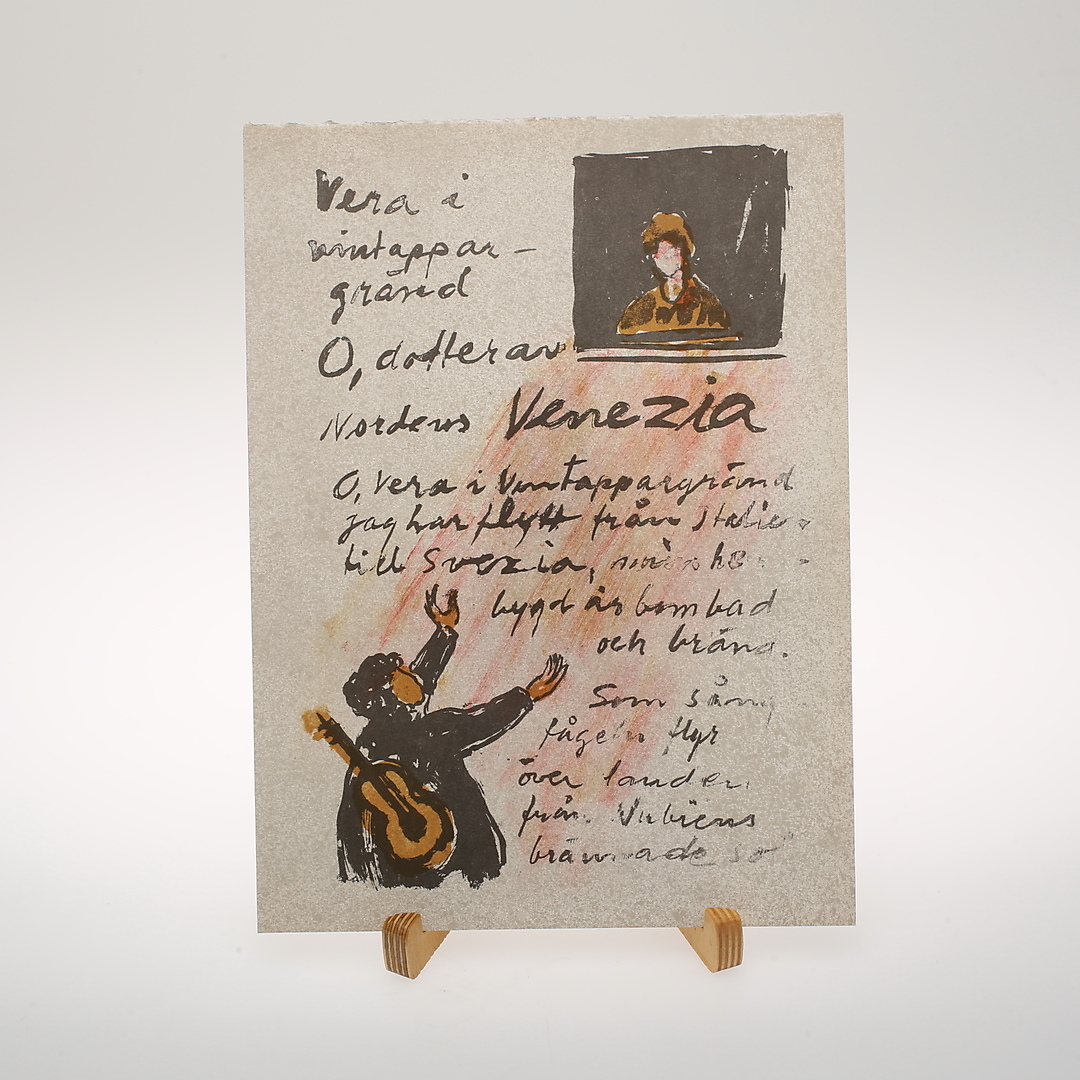 Vera i
vintappar-
gränd
O, dotter av
Nordens Venezia
O, Vera i Vintappargränd
jag har flytt från Italien
till Svezia, min
bygd är bombad
och bränd.
Som sång
fågeln flyr
över landen
från Nubiens
brännade